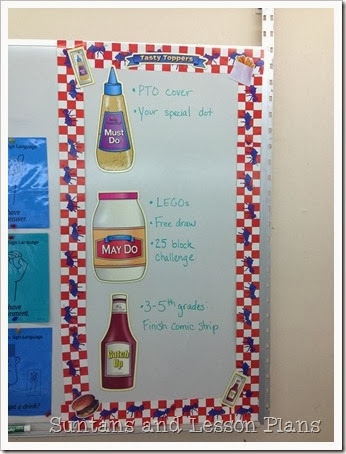 Tasty Toppers
Must
Do
• PTO cover
• Your special dot
MAY DO
• LEGOs
• Free draw
• 25 block
challenge
Catch
Up
• 3-5th grades:
Finish comic strip
Sign Language
Language
Suntans and Lesson Plans